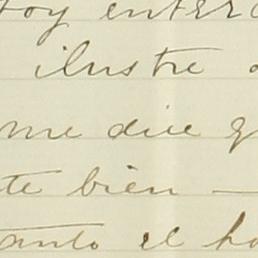 toy enter
ilustre
me dice q
te bien —
anto el ho